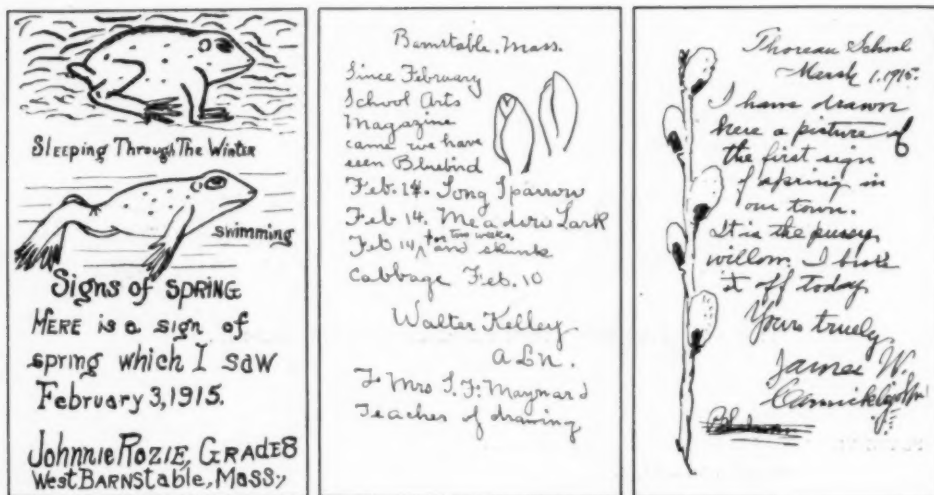 Sleeping Through The Winter
swimming
Signs of SPRING
HERE is a sign of
spring which I saw
February 3, 1915.
Johnnie Rozie, GRADE 8
West BARNstable, Mass.
Barnstable, Mass.
Since February
School Arts
Magazine
came we have
seen Bluebird
Feb. 14. Song Sparrow
Feb 14. Meadows Lark
for two weeks,
Feb 14, and skunk
cabbage Feb. 10
Walter Kelley
Mrs Maynard
Teacher of drawing
Thoreau School
March 1, 1915.
I have drawn
here a picture of
the first sign
of spring in
our town.
It is the pussy
willow. I broke
it off today
Yours truely,
James W.